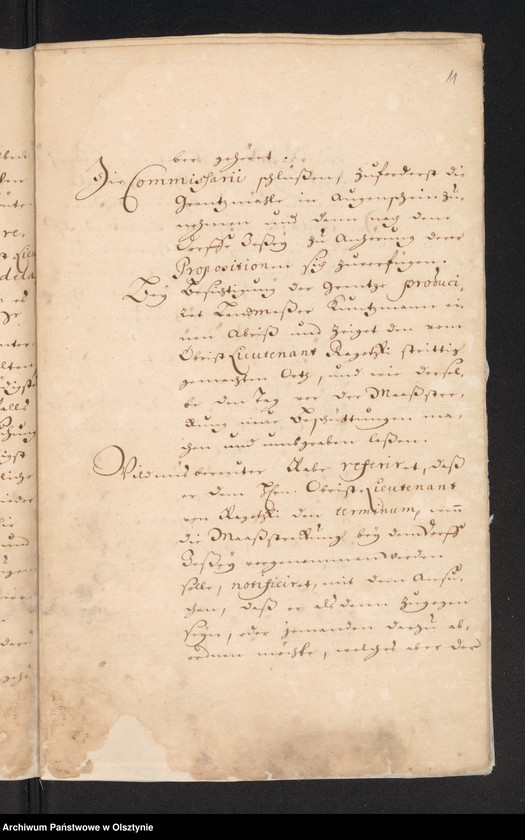 11
ber gehöret.
Die Commissarii schlüßen, zuforderst die
Grentzmahle in Augenschein zu
nehmen und dann nach dem
Dorffe zu Anhörung derer
Propositionen sich zuverfügen.
Bey Besichtigung der Grentze produci-
ret Landmeßer Kuntzmann ei-
nen Abriß und zeiget den vom
Obrist Lieutenant streittig
gemachten Orth, und wie dersel-
be den Tag vor der Maaßstre-
ckung neue Beschüttungen ma-
chen und umbgraben laßen.
Wildnusbereuter Rabe referiret, daß
er dem Hrn. Obrist-Lieutenant
von den terminum, wenn
die Maaßstreckung bey dem Dorff
vorgenommen werden
solle, notificiret, mit dem Ansu-
chen, daß er alsdann zugegen
seyn, oder jemanden darzu ab-
ordnen möchte, welches aber der
Archiwum Państwowe w Olsztynie